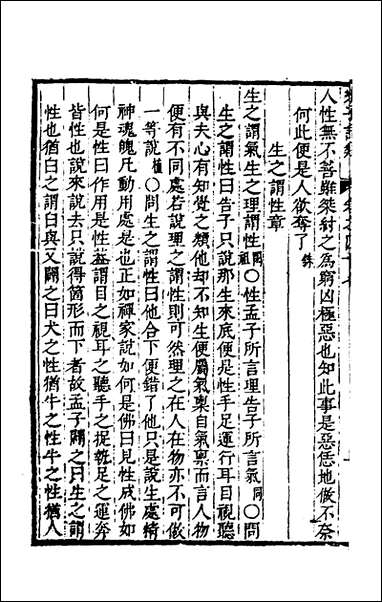 人性無不善雖桀紂之為窮凶極惡也知此事是惡恁地做不奈
何此便是人欲奪了銖
生之謂性章
生之謂氣生之理謂性閎祖〇性孟子所言理告子所言氣同〇問
生之謂性曰告子只說那生來底便是性手足運行耳目視聽
與夫心有知覺之類他却不知生便屬氣稟自氣稟而言人物
便有不同處若說理之謂性則可然理之在人在物亦不可做
一等說植〇問生之謂性曰他合下便錯了他只是說生處精
神魂魄凡動用處是也正如禪家說如何是佛曰見性成佛如
何是性曰作用是性蓋謂目之視耳之聽手之捉執足之運奔
皆性也說來說去只說得箇形而下者故孟子闢之曰生之謂
性也猶白之謂白與又闢之曰犬之性猶牛之性牛之性猶人